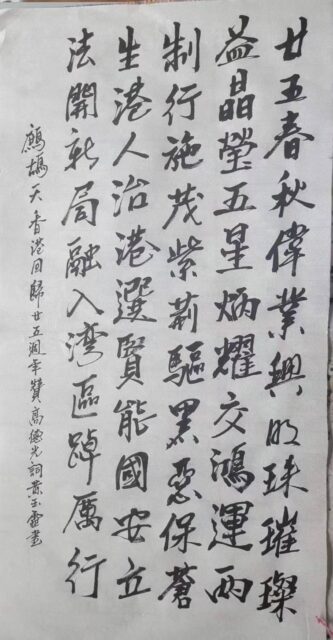 廿五春秋偉業興明珠璀璨
益晶瑩五星炳耀交鴻運两
制行施茂紫荊驅黑惡保蒼
生港人治港選賢能國安立
法開新局融入灣區踔厲行
鷓鴣天香港回歸廿五週年贊高德光詞黄玉雷書